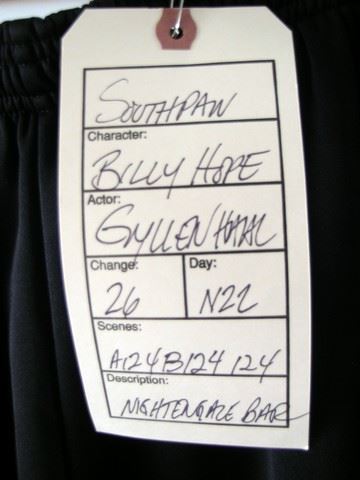 SOUTHPAW
Character:
BILLY HOPE
Actor:
GYLLENHAAL
Change: Day:
26 N22
Scenes:
A124 B124 124
Description:
NIGHTENGALE BAR